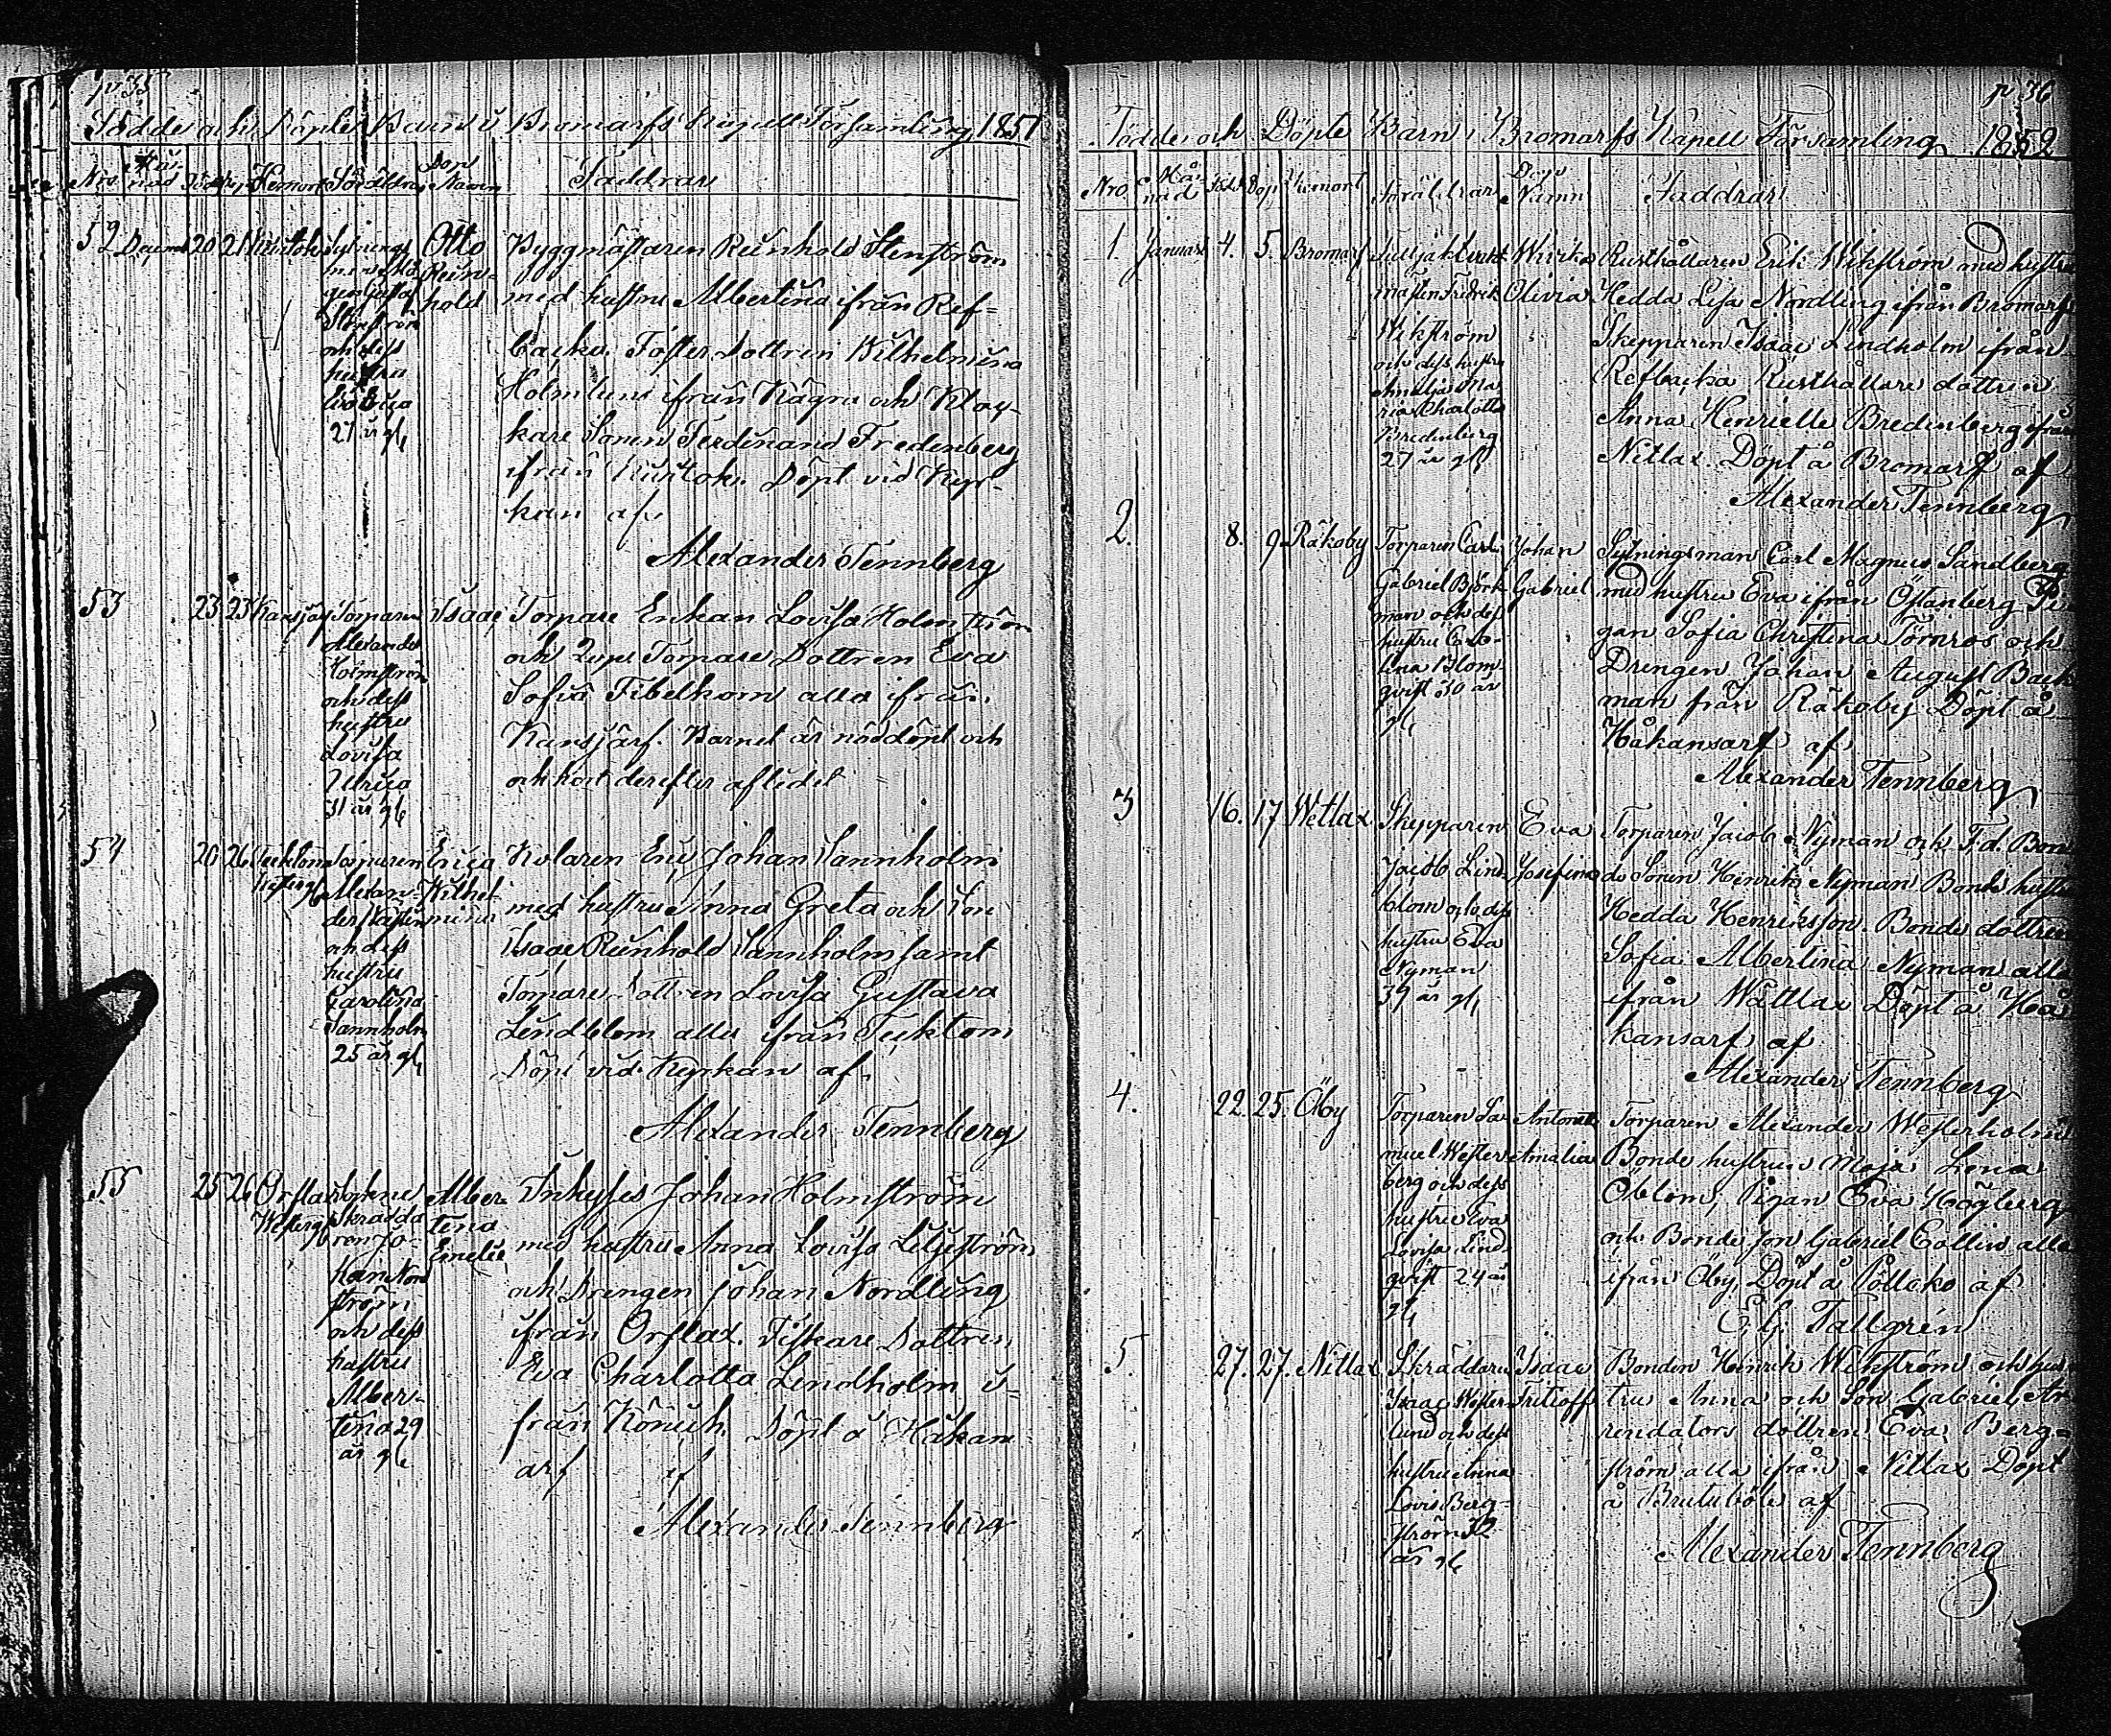 p 35
Födde och Döpte Barn i Bromarfs Capell Församling 1851
Nro Månad Född Döpt Hemort Föräldrar Dop Namn Faddrar
52 Decemb 20 21
Sytnings
och dess
hustru
27 år gl
Otto
Rein-
hold
Byggmästaren Reinhold Stenström
med hustru Albertina ifrån Ref=
backa. Foster Dottren Wilhelmina
Holmlund ifrån Kägra och Kloc-
kare Sonen Ferdinand Fredenberg
ifrån Döpt vid Kyr-
kan af
Alexander Tennberg
53 23 23 Kansjärf
Torparen
Alexander
Holmström
och dess
hustru
Lovisa
Ulrica
31 år gl
Isaac
Torpare Enkan Lovisa Holmström
och Torpare Dottren Eva
Sofia Fibelkorn alla ifrån
Kansjärf. Barnet är nöddöpt och
och kort derefter aflidet
54 26
Torparen
Alexan-
der
och dess
hustru
Carolina
Tannholm
25 år gl
Erica
Wilhel-
mina
Kolaren Eric Johan Tannholm
med hustru Anna Greta och Son
Isaac Reinhold Tannholm samt
Torpare Dottren Lovisa Gustava
Lindblom alla ifrån Tecktom
Döpt vid Kyrkan af
Alexander Tennberg
55 25 26 Orslax
Westerg
Skrädda
ren Jo-
han Nord
ström
och dess
hustru
Alber-
tina 29
år gl
Alber-
tina
Emelie
Inhyses Johan Holmström
med hustru Anna Lovisa Liljeström
och Drengen Johan Nordling
ifrån Orslax. Fiskare Dottren
Eva Charlotta Lindholm i-
från Döpt å Håkans
arf af
Alexander Tennberg
p 36
Födde och Döpte Barn i Bromarfs Kapell Församling 1852
Nro Månad Född Döpt Hemort Föräldrar Dops Namn Faddrar
1. Januari 4. 5. Bromarf
mästen Fredrik
Wikström
och dess hustru
Amalja Ma
ria Charlotta
Bredenberg
27 år gl
Ulrika
Olivia
Rusthållaren Erik Wikström med hustru
Hedda Lisa Nordling ifrån Bromarf
Skepparen Isaac Lindholm ifrån
Refbacka Rusthållare dottren
Anna Henriette Bredenberg ifrån
Nitlax. Döpt å Bromarf af
Alexander Tennberg
2. 8. 9 Räkoby
Torparen Carl
Gabriel Björk
man och dess
hustru Caro-
lina Blom-
qvist 30 år
gl
Johan
Gabriel
Sytningsman Carl Magnus Sandberg
med hustru Eva ifrån Östanberg Pi
gan Sofia Christina Törnros och
Drengen Johan August Back
man från Räkoby Döpt å
Håkansarf af
Alexander Tennberg
3 16. 17 Wetlax
Skepparen
Jacob Lind-
blom och dess
hustru Eva
Nyman
39 år gl
Eva
Josefina
Torparen Jacob Nyman och F.d. Bon
de Sonen Henrik Nyman Bonde hustru
Hedda Henriksson. Bonde dottren
Sofia Albertina Nyman alla
ifrån Wättlax Döpt å Hå
kansarf af
Alexander Tennberg
4. 22. 25. Öby
Torparen Sa
muel Wester
berg och dess
hustru Eva
Lovisa Lind
qvist 24 år
gl
Antonett
Amalia
Torparen Alexander Westerholm
Bonde hustrun Maja Lena
Öblom, Pigan Eva Högberg
och Bonde Son Gabriel Collin alla
ifrån Öby, Döpt å Pålloko af
E. G. Tallgren
5. 27. 27. Nitlax
Skräddaren
Isaac Wester
lund och dess
hustru Anna
Lovis Berg-
ström 32
år gl
Isaac
Fritioff
Bonden Henrik Wikström och hus
tru Anna och Son Gabriel Ar
rendators dottren Eva Berg=
ström alla ifrån Nitlax Döpt
å Brutuböle af
Alexander Tennberg